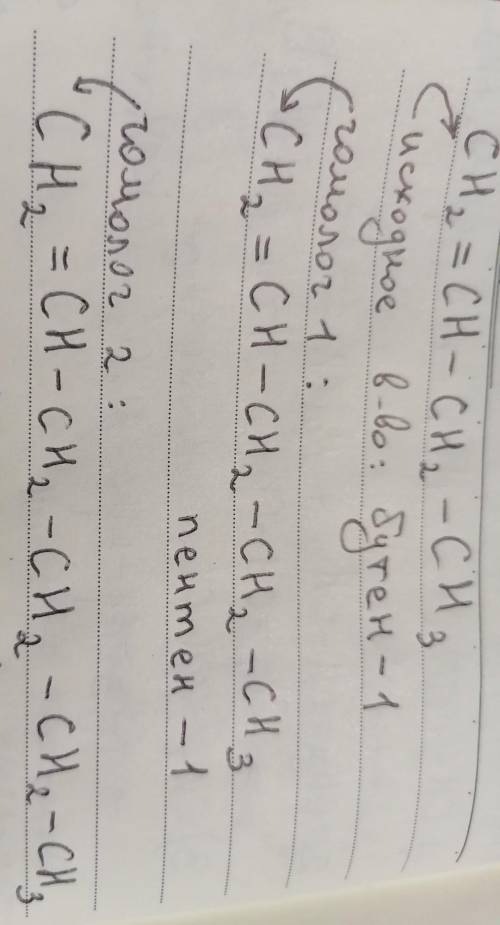 CH₂=CH-CH₂-CH₃
исходное в-во: бутен-1
гомолог 1:
CH₂=CH-CH₂-CH₂-CH₃
пентен-1
гомолог 2:
CH₂=CH-CH₂-CH₂-CH₂-CH₃